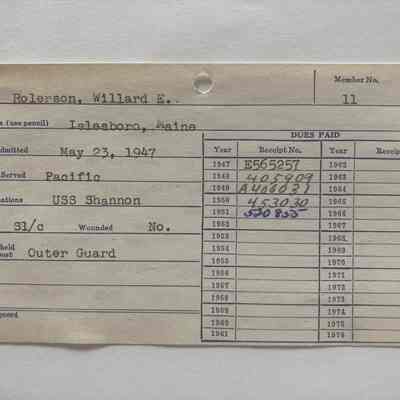 Member No.
Rolerson, Willard E. 11
(use pencil) Islesboro, Maine
DUES PAID
Year Receipt No. Year Receip
dmitted May 23, 1947
1947 E565257 1962
Served Pacific
1948 405909 1963
1949 A406021 1964
ations USS Shannon
1950 453030 1965
1951 520855 1966
S1/c Wounded No.
1952 1967
1953 1968
held Outer Guard
1954 1969
1955 1970
1956 1971
1957 1972
1958 1973
1959 1974
1960 1975
1961 1976